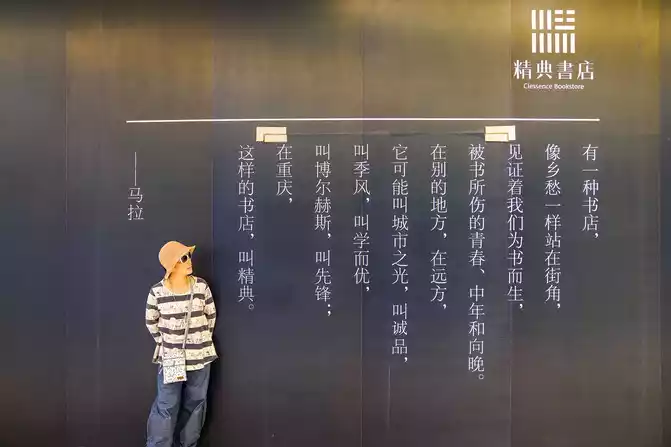 精典書店
Clessence Bookstore
有一种书店，
像乡愁一样站在街角，
见证着我们为书而生，
被书所伤的青春、中年和向晚。
在别的地方，在远方，
它可能叫城市之光，叫诚品，
叫季风，叫学而优，
叫博尔赫斯，叫先锋；
在重庆，
这样的书店，叫精典。
——马拉